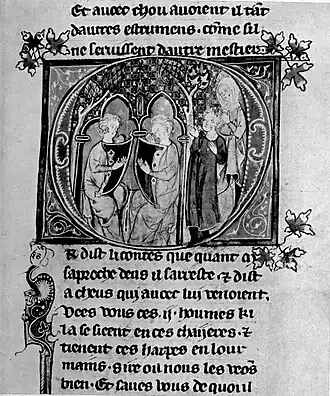 Et avoec chou avoient il tāt
dautres estrumens. cōme sil
ne seruissent dautre mestier.
R dist li contes que quant
saproche dens il sarreste. ⁊ dist
a cheus qui auoec lui venoient.
Vees vous ces .ij. houmes ki
la se sieent en ces chaijeres. ⁊
tienent ces harpes en lour
mains. sire ou nous les veōs
bien. Et saues vous de quoi il